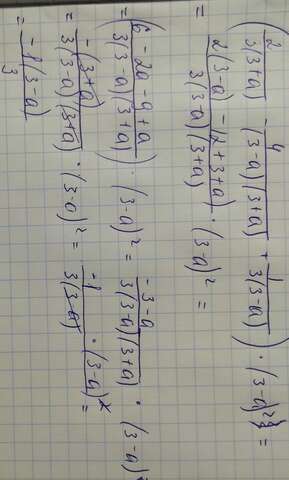 (2/3(3+a) - 4/(3-a)(3+a) + 1/3(3-a)) · (3-a)² =
= 2(3-a) - 12 + 3 + a/3(3-a)(3+a) · (3-a)² =
= (6 - 2a - 9 + a/3(3-a)(3+a)) · (3-a)² = -3-a/3(3-a)(3+a) · (3-a)²
= -(3+a)/3(3-a)(3+a) · (3-a)² = -1/3(3-a) · (3-a)² =
= -1(3-a)/3